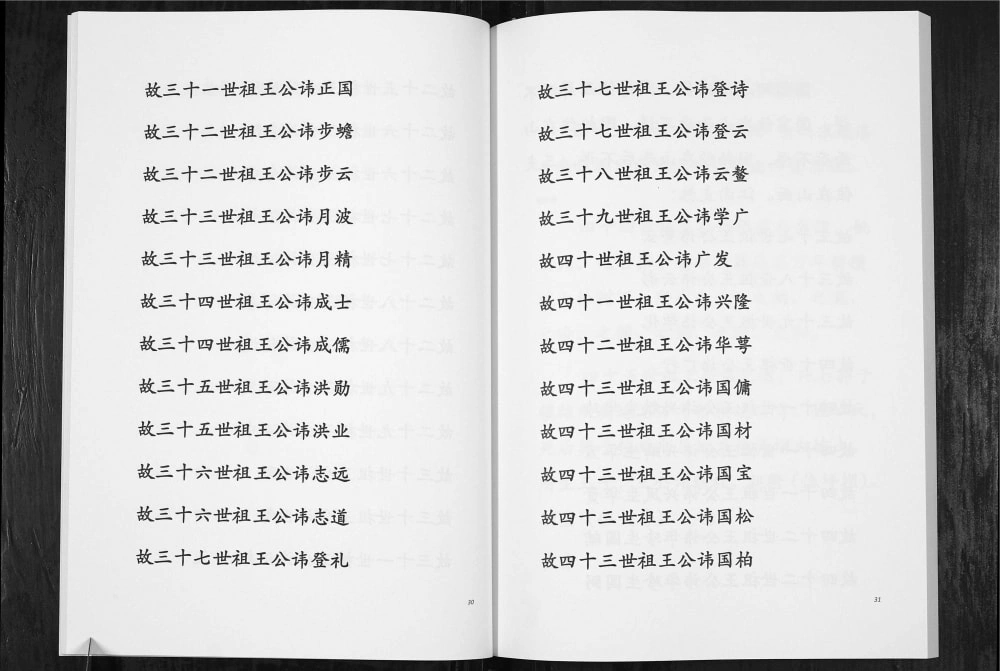 故三十一世祖王公讳正国
故三十二世祖王公讳步蟾
故三十二世祖王公讳步云
故三十三世祖王公讳月波
故三十三世祖王公讳月精
故三十四世祖王公讳成士
故三十四世祖王公讳成儒
故三十五世祖王公讳洪勋
故三十五世祖王公讳洪业
故三十六世祖王公讳志远
故三十六世祖王公讳志道
故三十七世祖王公讳登礼
30
故三十七世祖王公讳登诗
故三十七世祖王公讳登云
故三十八世祖王公讳云鳌
故三十九世祖王公讳学广
故四十世祖王公讳广发
故四十一世祖王公讳兴隆
故四十二世祖王公讳华萼
故四十三世祖王公讳国傭
故四十三世祖王公讳国材
故四十三世祖王公讳国宝
故四十三世祖王公讳国松
故四十三世祖王公讳国柏
31